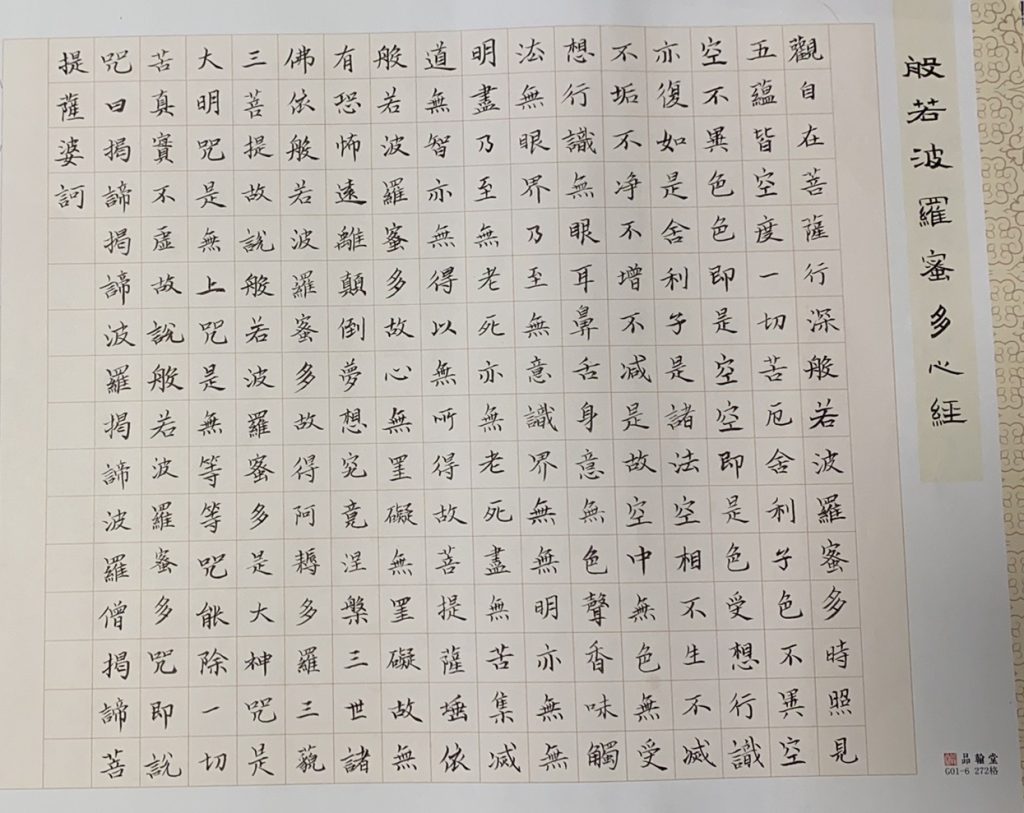 般若波羅蜜多心經
觀自在菩薩行深般若波羅蜜多時照見
五蘊皆空度一切苦厄舍利子色不異空
空不異色色即是空空即是色受想行識
亦復如是舍利子是諸法空相不生不滅
不垢不净不增不减是故空中無色無受
想行識無眼耳鼻舌身意無色聲香味觸
法無眼界乃至無意識界無無明亦無無
明盡乃至無老死亦無老死盡無苦集滅
道無智亦無得以無所得故菩提薩埵依
般若波羅蜜多故心無罣礙無罣礙故無
有恐怖遠離顛倒夢想究竟涅槃三世諸
佛依般若波羅蜜多故得阿耨多羅三藐
三菩提故說般若波羅蜜多是大神咒是
大明咒是無上咒是無等等咒能除一切
苦真實不虛故說般若波羅蜜多咒即說
咒曰揭諦揭諦波羅揭諦波羅僧揭諦菩
提薩婆訶
品翰堂
G01-6 272格